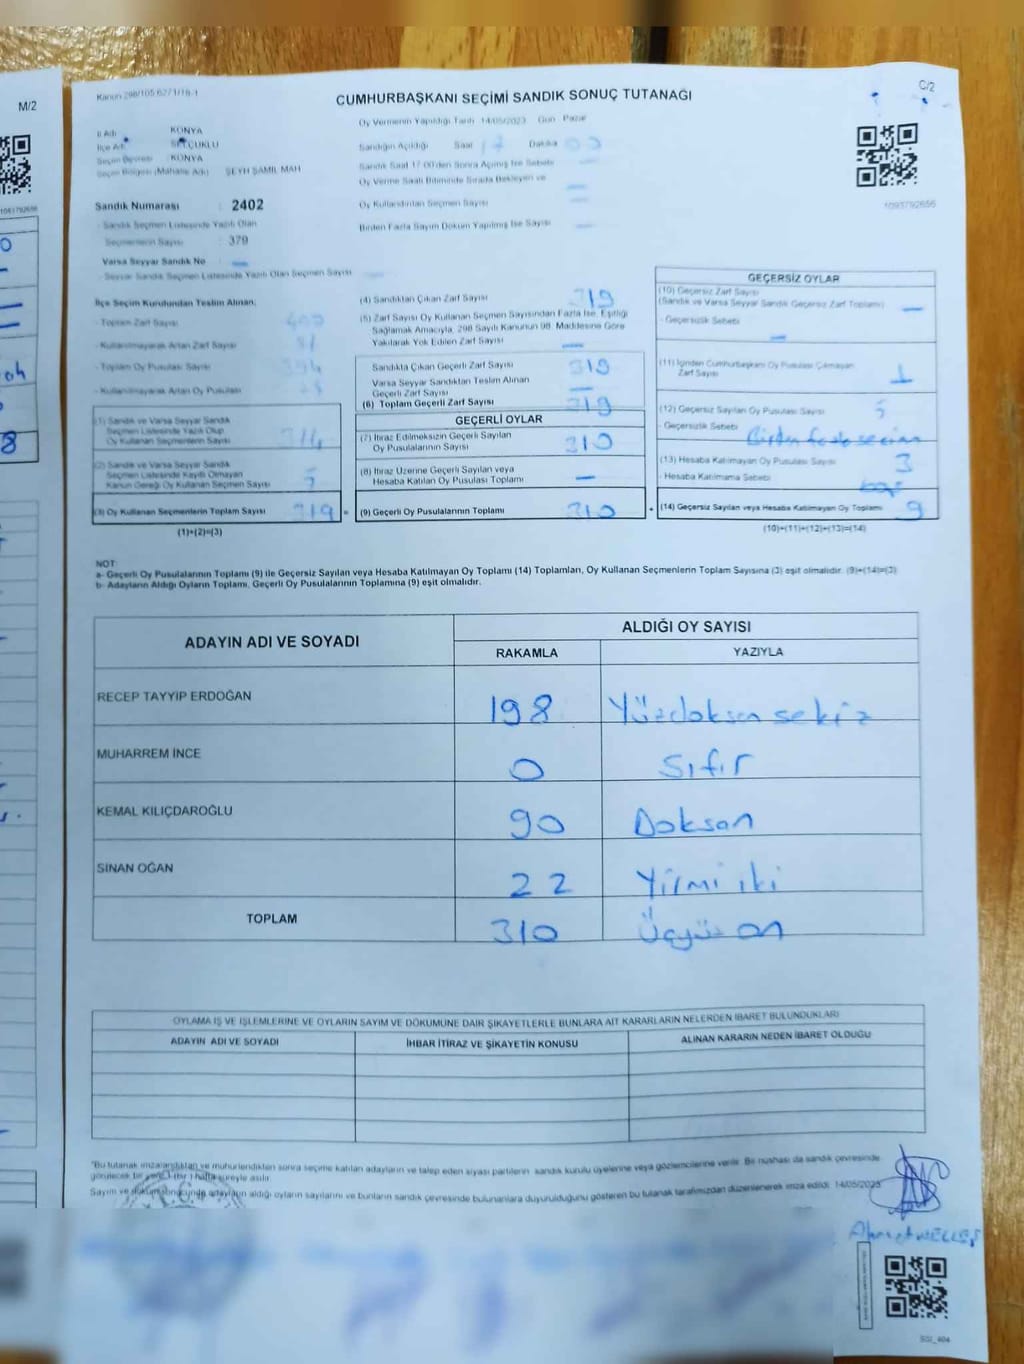 M/2
Kanun 298/105 6271/18-1
C/2
CUMHURBAŞKANI SEÇİMİ SANDIK SONUÇ TUTANAĞI
Oy Vermenin Yapıldığı Tarih 14/05/2023 Gün Pazar
İl Adı KONYA
İlçe Adı SELÇUKLU
Seçim Çevresi KONYA
Seçim Bölgesi (Mahalle Adı) ŞEYH ŞAMİL MAH
Sandığın Açıldığı Saat 17 Dakika 00
Sandık Saat 17:00'den Sonra Açılmış İse Sebebi
Oy Verme Saati Bitiminde Sırada Bekleyen ve
Oy Kullandırılan Seçmen Sayısı
Birden Fazla Sayım Döküm Yapılmış İse Sayısı
1093792656
Sandık Numarası : 2402
- Sandık Seçmen Listesinde Yazılı Olan
Seçmenlerin Sayısı : 379
Varsa Seyyar Sandık No
- Seyyar Sandık Seçmen Listesinde Yazılı Olan Seçmen Sayısı
İlçe Seçim Kurulundan Teslim Alınan;
- Toplam Zarf Sayısı
- Kullanılmayarak Artan Zarf Sayısı
- Toplam Oy Pusulası Sayısı
- Kullanılmayarak Artan Oy Pusulası
(1) Sandık ve Varsa Seyyar Sandık
Seçmen Listesinde Yazılı Olup
Oy Kullanan Seçmenlerin Sayısı 314
(2) Sandık ve Varsa Seyyar Sandık
Seçmen Listesinde Kayıtlı Olmayan
Kanun Gereği Oy Kullanan Seçmen Sayısı 5
(3) Oy Kullanan Seçmenlerin Toplam Sayısı 319 =
(1)+(2)=(3)
(4) Sandıktan Çıkan Zarf Sayısı 319
(5) Zarf Sayısı Oy Kullanan Seçmen Sayısından Fazla İse, Eşitliği
Sağlamak Amacıyla, 298 Sayılı Kanunun 98. Maddesine Göre
Yakılarak Yok Edilen Zarf Sayısı —
Sandıkta Çıkan Geçerli Zarf Sayısı 319
Varsa Seyyar Sandıktan Teslim Alınan
Geçerli Zarf Sayısı —
(6) Toplam Geçerli Zarf Sayısı 319
GEÇERLİ OYLAR
(7) İtiraz Edilmeksizin Geçerli Sayılan
Oy Pusulalarının Sayısı 310
(8) İtiraz Üzerine Geçerli Sayılan veya
Hesaba Katılan Oy Pusulası Toplamı —
(9) Geçerli Oy Pusulalarının Toplamı 310 +
GEÇERSİZ OYLAR
(10) Geçersiz Zarf Sayısı
(Sandık ve Varsa Seyyar Sandık Geçersiz Zarf Toplamı) —
- Geçersizlik Sebebi —
(11) İçinden Cumhurbaşkanı Oy Pusulası Çıkmayan
Zarf Sayısı 1
(12) Geçersiz Sayılan Oy Pusulası Sayısı 5
- Geçersizlik Sebebi Birden fazla seçim
(13) Hesaba Katılmayan Oy Pusulası Sayısı 3
- Hesaba Katılmama Sebebi boş
(14) Geçersiz Sayılan veya Hesaba Katılmayan Oy Toplamı 9
(10)+(11)+(12)+(13)=(14)
NOT:
a- Geçerli Oy Pusulalarının Toplamı (9) ile Geçersiz Sayılan veya Hesaba Katılmayan Oy Toplamı (14) Toplamları, Oy Kullanan Seçmenlerin Toplam Sayısına (3) eşit olmalıdır. (9)+(14)=(3)
b- Adayların Aldığı Oyların Toplamı, Geçerli Oy Pusulalarının Toplamına (9) eşit olmalıdır.
ADAYIN ADI VE SOYADI
ALDIĞI OY SAYISI
RAKAMLA YAZIYLA
RECEP TAYYİP ERDOĞAN 198 Yüzdoksan sekiz
MUHARREM İNCE 0 Sıfır
KEMAL KILIÇDAROĞLU 90 Doksan
SİNAN OĞAN 22 Yirmi iki
TOPLAM 310 Üçyüz on
OYLAMA İŞ VE İŞLEMLERİNE VE OYLARIN SAYIM VE DÖKÜMÜNE DAİR ŞİKAYETLERLE BUNLARA AİT KARARLARIN NELERDEN İBARET BULUNDUKLARI
ADAYIN ADI VE SOYADI İHBAR İTİRAZ VE ŞİKAYETİN KONUSU ALINAN KARARIN NEDEN İBARET OLDUĞU
"Bu tutanak imzalandıktan ve mühürlendikten sonra seçime katılan adayların ve talep eden siyasi partilerin sandık kurulu üyelerine veya gözlemcilerine verilir. Bir nüshası da sandık çevresinde
görülecek bir yere 1 (bir) hafta süreyle asılır.
Sayım ve döküm sonucunda adayların aldığı oyların sayılarını ve bunların sandık çevresinde bulunanlara duyurulduğunu gösteren bu tutanak tarafımızdan düzenlenerek imza edildi. 14/05/2023
Ahmet